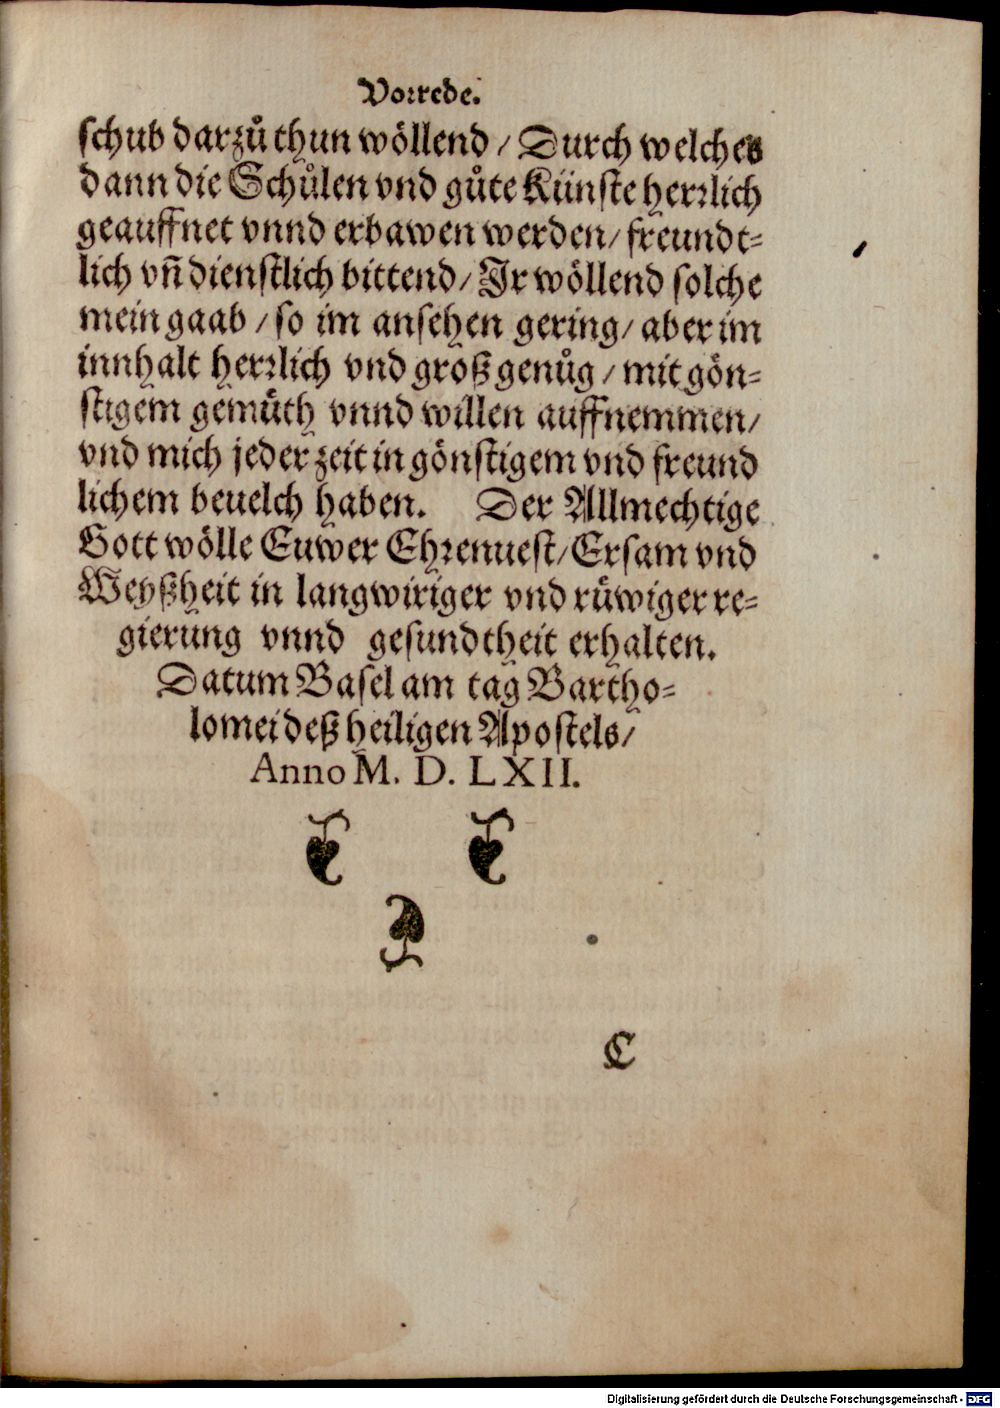 Vorrede.
schub darzů thun wöllend / Durch welches
dann die Schůlen vnd gůte Künste herrlich
geauffnet vnnd erbawen werden / freundt=
lich vn̄ dienstlich bittend / Ir wöllend solche
mein gaab / so im ansehen gering / aber im
innhalt herrlich vnd groß genůg / mit gön=
stigem gemüth vnnd willen auffnemmen /
vnd mich jederzeit in gönstigem vnd freund
lichem beuelch haben. Der Allmechtige
Gott wölle Euwer Ehrenuest / Ersam vnd
Weyßheit in langwiriger vnd rüwiger re=
gierung vnnd gesundtheit erhalten.
Datum Basel am tag Bartho=
lomei deß heiligen Apostels /
Anno M. D. LXII.
C
Digitalisierung gefördert durch die Deutsche Forschungsgemeinschaft - DFG